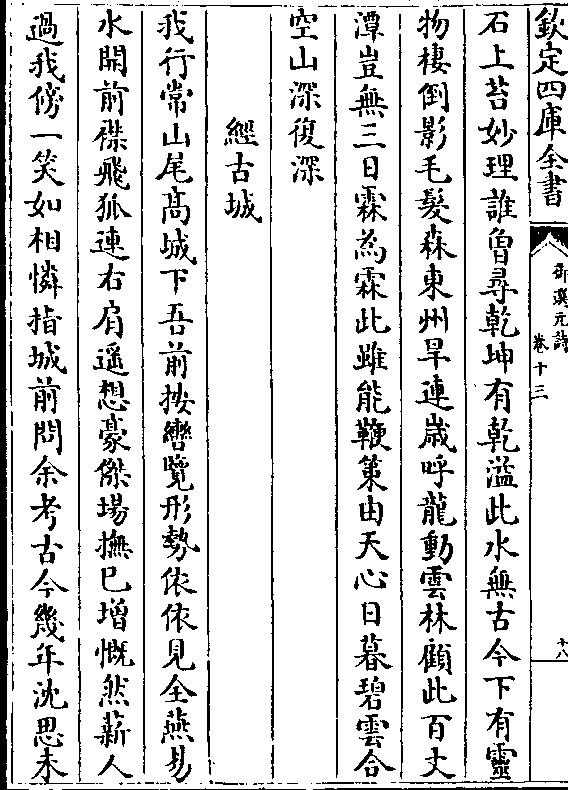 欽定四庫全書
御選元詩
卷十三
十八
石上苔妙理誰曾尋乾坤有乾溢此水無古今下有靈
物棲倒影毛髮森東州旱連歳呼龍動雲林顧此百丈
潭豈無三日霖為霖此雖能鞭策由天心日暮碧雲合
空山深復深
經古城
我行常山尾髙城下吾前按轡覽形勢依依見全燕易
水開前襟飛狐連右肩遥想豪傑場撫已增慨然薪人
過我傍一笑如相憐指城前問余考古今幾年沈思未